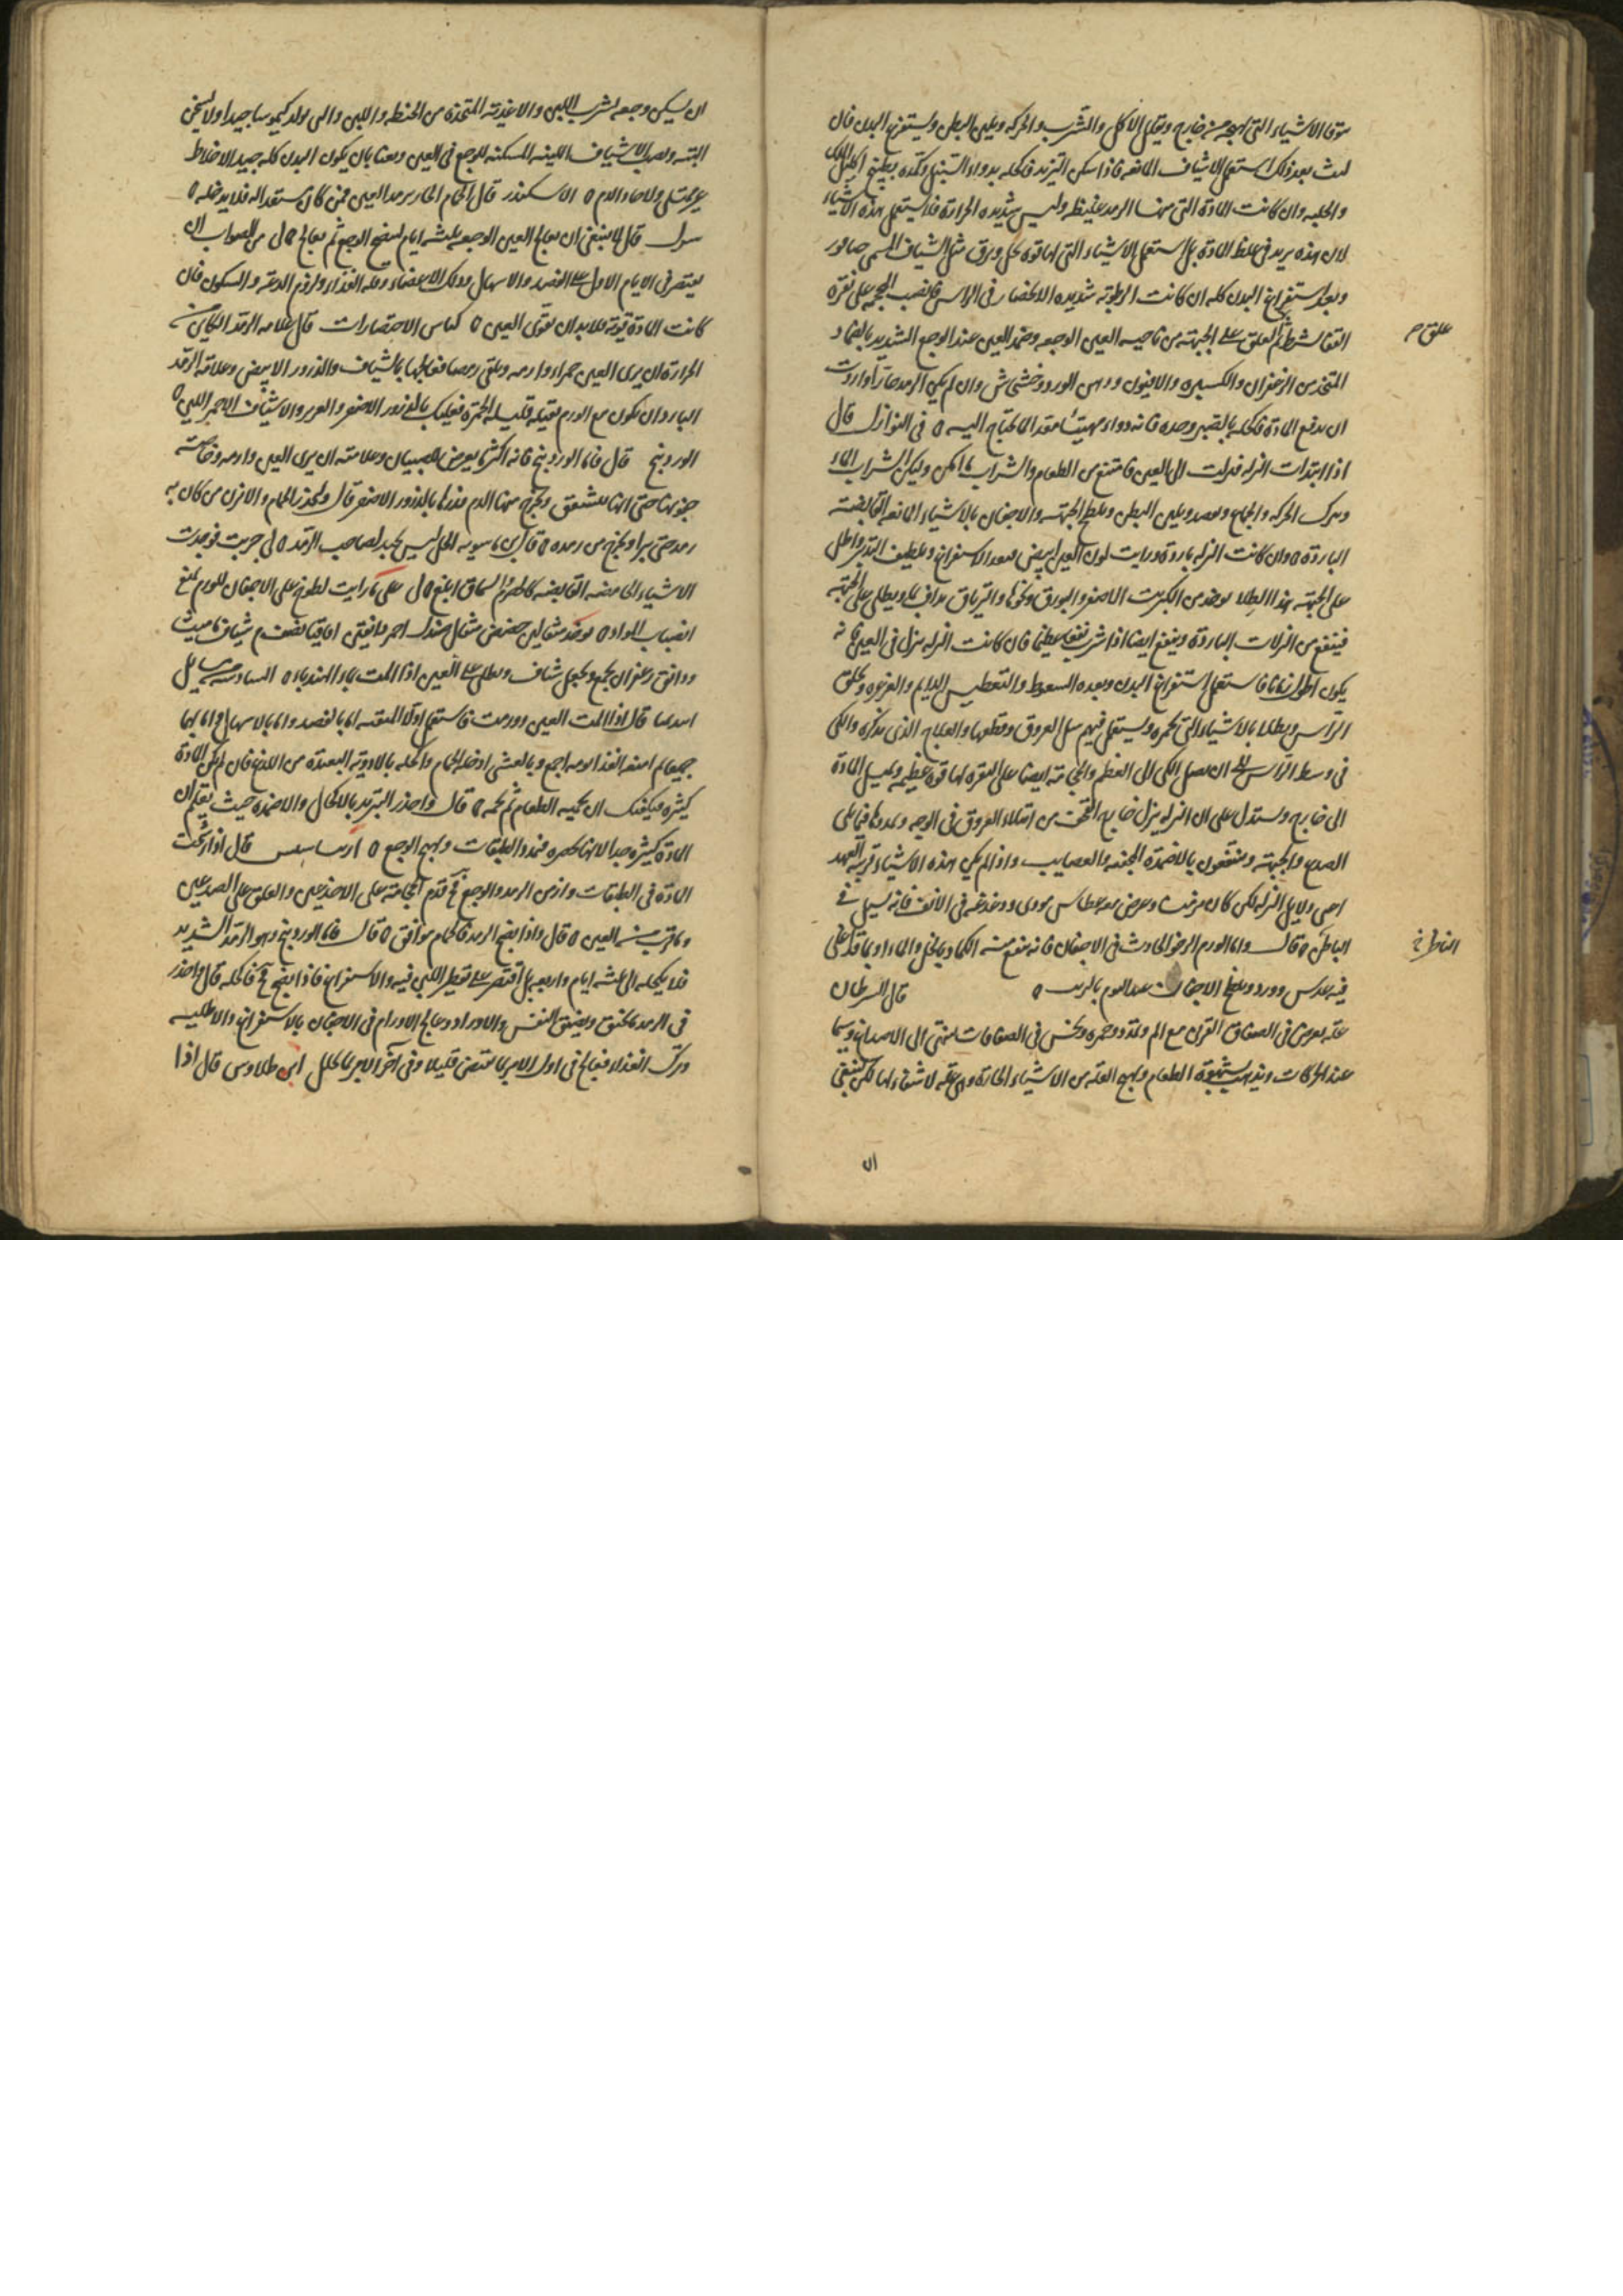 توقا الاشياء التي تهيجه من خارج ويقلل الاكل والشرب والحركه ويلين البطن ويستفرغ البدن فان
لبث بعد ذلك استعمل الاشياف المانعه فاذا سكن التزيد فاكحله بدواء السنبل وكمده بطبيخ اكليل الملك
والحلبه وان كانت المادة التي منها الرمد غليظه وليس شديده الحرارة فلا يستعمل هذه الاشياء
لان هذه يزيد في غلظ المادة بل استعمل الاشياء التي لها قوة تحلل وترق مثل الشياف المسمى
وبعد استفراغ البدن كله ان كانت الرطوبة شديده الانحصار في الراس فانصب المحجمه على نقرة
علق م
القفا بشرط ثم العلق على الجبهة من ناحيه العين الوجعه وضمد العين عند الوجع الشديد بالضماد
المتخذ من الزعفران والكسبره والافيون ودهن الورد وخشخاش وان لم يكن الرمد حارا واردت
ان تدفع المادة فاكحله بالصبر وحده فانه دواء مهيئا معدا لما تحتاج اليه ه في النوازل قال
اذا ابتدات النزله فنزلت الى العين فامتنع من الطعام والشراب ما امكن وليكن الشراب الماء
وترك الحركه والجماع وتفصد وتلين البطن وتلطخ الجبهة والاجفان بالاشياء المانعه القابضة
الباردة ه وان كانت النزله باردة ورايت لون العين ابيض فبعد الاستفراغ وتلطيف التدبير واطل
على الجبهة بهذا الطلا يوخذ من الكبريت الاصفر والبورق ونحوها والترياق يداف بماء ويطلى على الجبهة
فينتفع من النزلات الباردة وينفع ايضا اذا شرب نفعا عظيما فان كانت النزله تنزل في العين فانه
يكون اطول زمانا فاستعمل استفراغ البدن وبعده السعوط والتعطيس الدايم والغرغره ويحلق
الراس ويطلا بالاشياء التي تحمره ويستعمل فيهم سل العروق وقطعها والعلاج الذي نذكره والكي
في وسط الراس الى ان يصل الكي الى العظم والحجامة ايضا على النقره لها قوة عظيمه وتميل المادة
الى خارج ويستدل على ان النزله تنزل خارج القحف من امتلاء العروق في الوجه وتمددها فيما يلي
الصدغ والجبهة وينتفعون بالاضمدة المجففه والعصايب واذا لم يكن هذه الاشياء قريبة العهد
اعني دلايل النزله لكن كان مزمنا وعرض معه عطاس موذي ودغدغه في الانف فانه تسيل في
الناظر خ
الباطن ه قال واما الورم الرخو الحادث في الاجفان فانه ينفع منه الكماد بالخل والماء او بماء قد غلى
فيه عدس وورد ويلطخ الاجفان عند النوم بالزيت ه قال السرطان
علة يعرض في الصفاق القرني مع الم وتمدد وحمره ونخس في الصفاقات ينتهي الى الاصداغ وسيما
عند الحركات ويذهب شهوة الطعام ويهيج العلة من الاشياء الحارة وهي علة لا شفاء لها لكن ينبغي
ان
ان يسكن وجعه بشرب اللبن والاغذية المتخذة من الحنطه واللبن والتي تولد كيموسا جيدا ولا يسخن
البتة ويصب الاشياف اللينه المسكنه للوجع في العين ويعنا بان يكون البدن كله جيد الاخلاط
غير ممتلى ولا حاد الدم ه الاسكندر قال الحمام الحار يرمد العين فمن كان مستعدا له فلا يدخله ه
قال لا ينبغي ان يعالج العين الوجعه ثلثه ايام لينضج الوجع ثم يعالج ه لي من الصواب ان
يقتصر في الايام الاول على الفصد والاسهال ودلك الاعضاء وقلة الغذاء ولزوم الدعة والسكون فان
كانت المادة قوية فلا بد ان تقوى العين ه كناس الاختصارات قال علامه الرمد الكاين من
الحرارة ان يرى العين حمراء وارمه وتلقي رمصا فعالجها بالشياف والذرور الابيض وعلامة الرمد
البارد ان يكون مع الورم ثقيله قليله الحمرة فعليك بالذرور الاصفر والغرور والاشياف الاحمر اللين ه
الوردينج قال فاما الوردينج فانه اكثر ما يعرض للصبيان وعلامته ان يرى العين وارمه وخاصة
جفونها حتى انها تتشقق ويخرج منها الدم فذرها بالذرور الاصفر قال وليحذر الحمام والابزن من كان به
رمد حتى يبرا ويخرج من رمده ه قال ابن ماسويه الخل ليس بجيد لصاحب الرمد ه لي جربت فوجدت
الاشياء الحامضه القابضه كالحصرم والسماق ابلغ ه لي على ما رايت لطوخ على الاجفان للورم يمنع
انصباب المواد ه يوخذ مثقالين حضض مثقال صندل احمر دانقين اقاقيا نصف م شياف ماميثا
ودانق زعفران يجمع ويجعل شياف ويطلى على العين اذا المت بماء الهندباء ه السادسه من مسايل
ابيديميا قال اذا المت العين وورمت فاستعمل اولا التنقيه اما بالفصد واما بالاسهال واما بهما
جميعا ثم امنعه الغذا يومه اجمع وبالعشي ادخله الحمام واكحله بالادوية البعيدة من اللذع فان لم تكن المادة
كثيره فيكفيك ان تحميه الطعام ثم تحمه ه قال واحذر التبريد بالاكحال والاضمده حيث تعلم ان
المادة كثيرة جدا لانها تحصره فتمدد الطبقات ويهيج الوجع ه قال اذا ارتكت
المادة في الطبقات وازمن الرمد والوجع فح قدم الحجامة على الاخدعين والعلق على الصدغين
وما قرب من العين ه قال واذا نضج الرمد فالحمام موافق ه قال فاما الوردينج وهو الرمد الشديد
فلا يكحله الى ثلثه ايام واربعه بل اقتصر على تقطير اللبن فيه والاستفراغ فاذا نضج فح فاكحله قال واحذر
في الرمد ما يخنق ويضيق النفس والاوراد وعالج الاورام في الاجفان بالاستفراغ والاطليه
وترك الغذاء فعالج في اول الامر بما يقبض قليلا وفي آخر الامر بما يحلل ابن طلاوس قال اذا